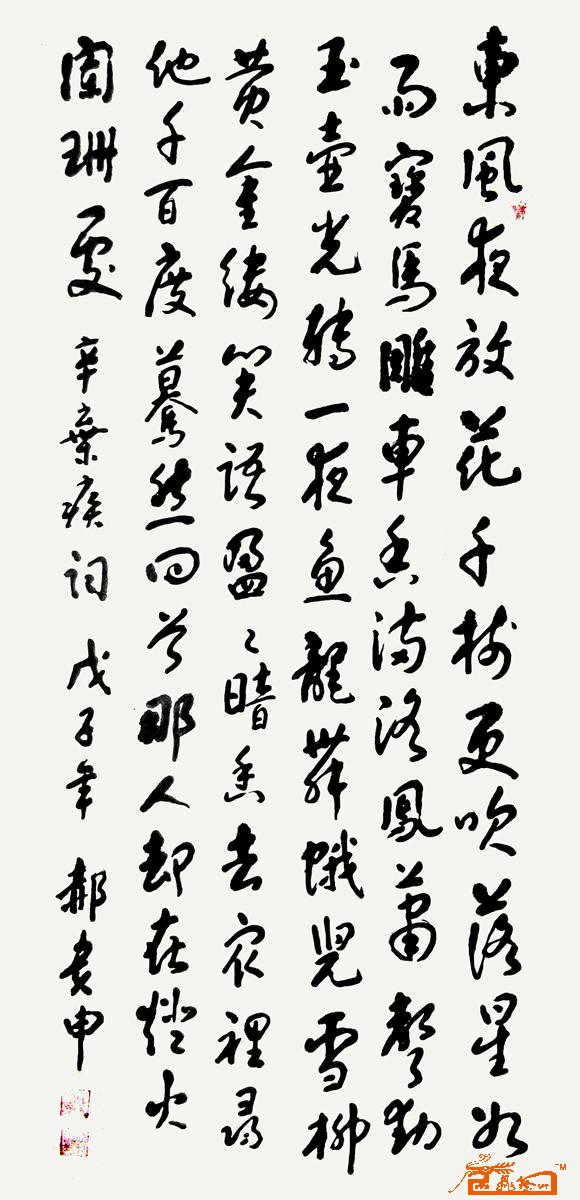 東風夜放花千樹更吹落星如
雨寶馬雕車香滿路鳳簫聲動
玉壺光轉一夜魚龍舞蛾兒雪柳
黃金縷笑語盈々暗香去衆裡尋
他千百度驀然回首那人却在燈火
闌珊處 辛棄疾詞 戊子年 郝書申